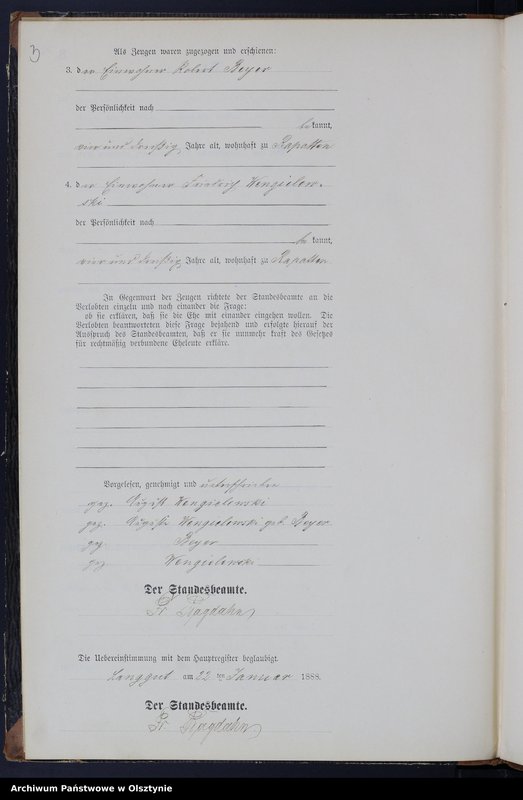 3
Als Zeugen waren zugezogen und erschienen:
3. der Einwohner Robert Beyer
der Persönlichkeit nach
bekannt,
vier und dreißig Jahre alt, wohnhaft zu Rapatten
4. der Einwohner Friedrich Wengielew-
ski
der Persönlichkeit nach
be kannt,
vier und dreißig Jahre alt, wohnhaft zu Rapatten
In Gegenwart der Zeugen richtete der Standesbeamte an die
Verlobten einzeln und nach einander die Frage:
ob sie erklären, daß sie die Ehe mit einander eingehen wollen. Die
Verlobten beantworteten diese Frage bejahend und erfolgte hierauf der
Ausspruch des Standesbeamten, daß er sie nunmehr kraft des Gesetzes
für rechtmäßig verbundene Eheleute erkläre.
Vorgelesen, genehmigt und unterschrieben
gez. August Wengielewski
gez. Auguste Wengielewski geb. Beyer
gez. Beyer
gez. Wengielewski
Der Standesbeamte.
Fr. Ragdahn
Die Uebereinstimmung mit dem Hauptregister beglaubigt.
Langgut am 22 ten Januar 1888.
Der Standesbeamte.
Fr. Ragdahn
Archiwum Państwowe w Olsztynie